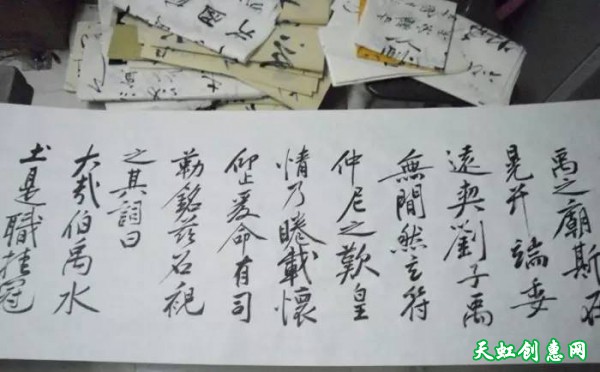 禹之廟斯石
晃弁端委
遠契劉子禹
無間然玄符
仲尼之歎皇
情乃睠載懷
仰止爰命有司
勒銘茲石視
之其詞曰
大哉伯禹水
土是職挂冠
天虹创惠网